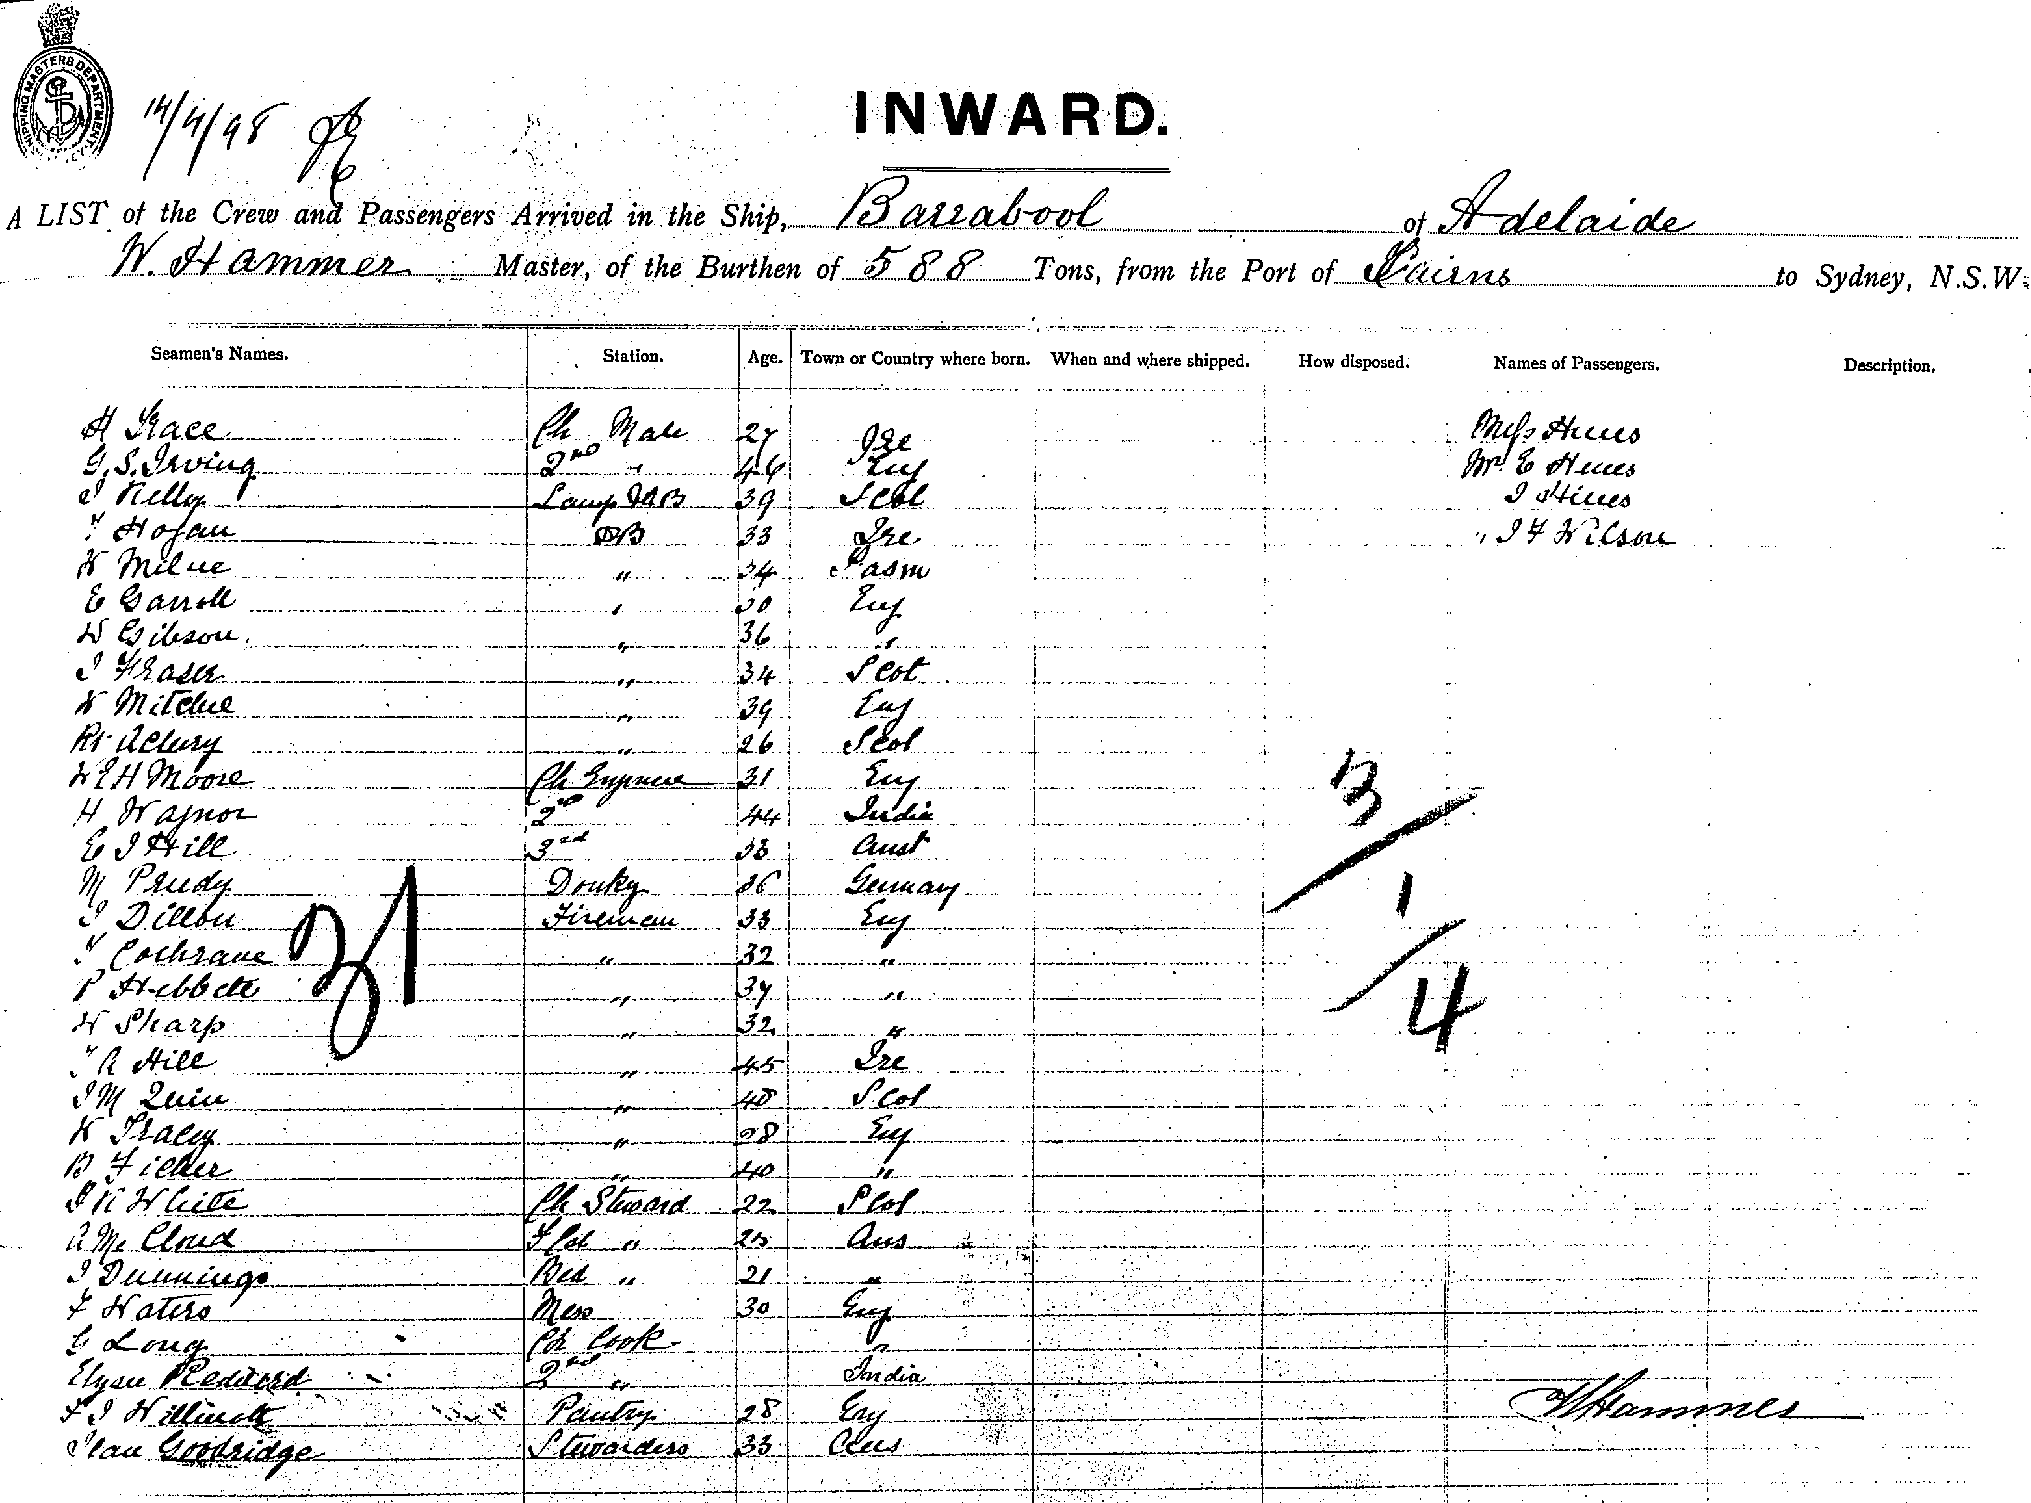 SHIPPING MASTERS DEPARTMENT
14/4/98
INWARD.
A LIST of the Crew and Passengers Arrived in the Ship, Barrabool of Adelaide
W. Hammer Master, of the Burthen of 588 Tons, from the Port of Cairns to Sydney, N.S.W.
Seamen's Names. Station. Age. Town or Country where born. When and where shipped. How disposed. Names of Passengers. Description.
H Grace Ch Mate 27 Ire Miss Hines
G. S. Irving 2nd " 46 Eng Mr E Hines
J Kelly Lamp & AB 39 Scot J Hines
T Hogan AB 33 Ire " J F Wilson
W Milne " 34 Tasm
E Garrott " 30 Eng
W Gibson " 36 "
J Fraser " 34 Scot
W Mitchie " 39 Eng
Rt " 26 Scot
H Moore Ch Engineer 31 Eng
H 2nd 44 India
E J Hill 3rd 33 Aust
M Donky 36 Germany
J Dillon Fireman 33 Eng
T Cochrane " 32 "
P Hibbett " 37 "
W Sharp " 32 "
T A Hill " 45 Ire
J M Quin " 48 Scot
W Tracey " 28 Eng
B " 40 "
J R White Ch Steward 22 Scot
A McCloud " 25 Aus
J Dunnings Bed " 21 "
F Waters Mess 30 Eng
G Long Ch Cook "
2nd " India
F J Pantry 28 Eng
Goodridge Stewardess 33 Aus
31
3/1/4
W Hammer